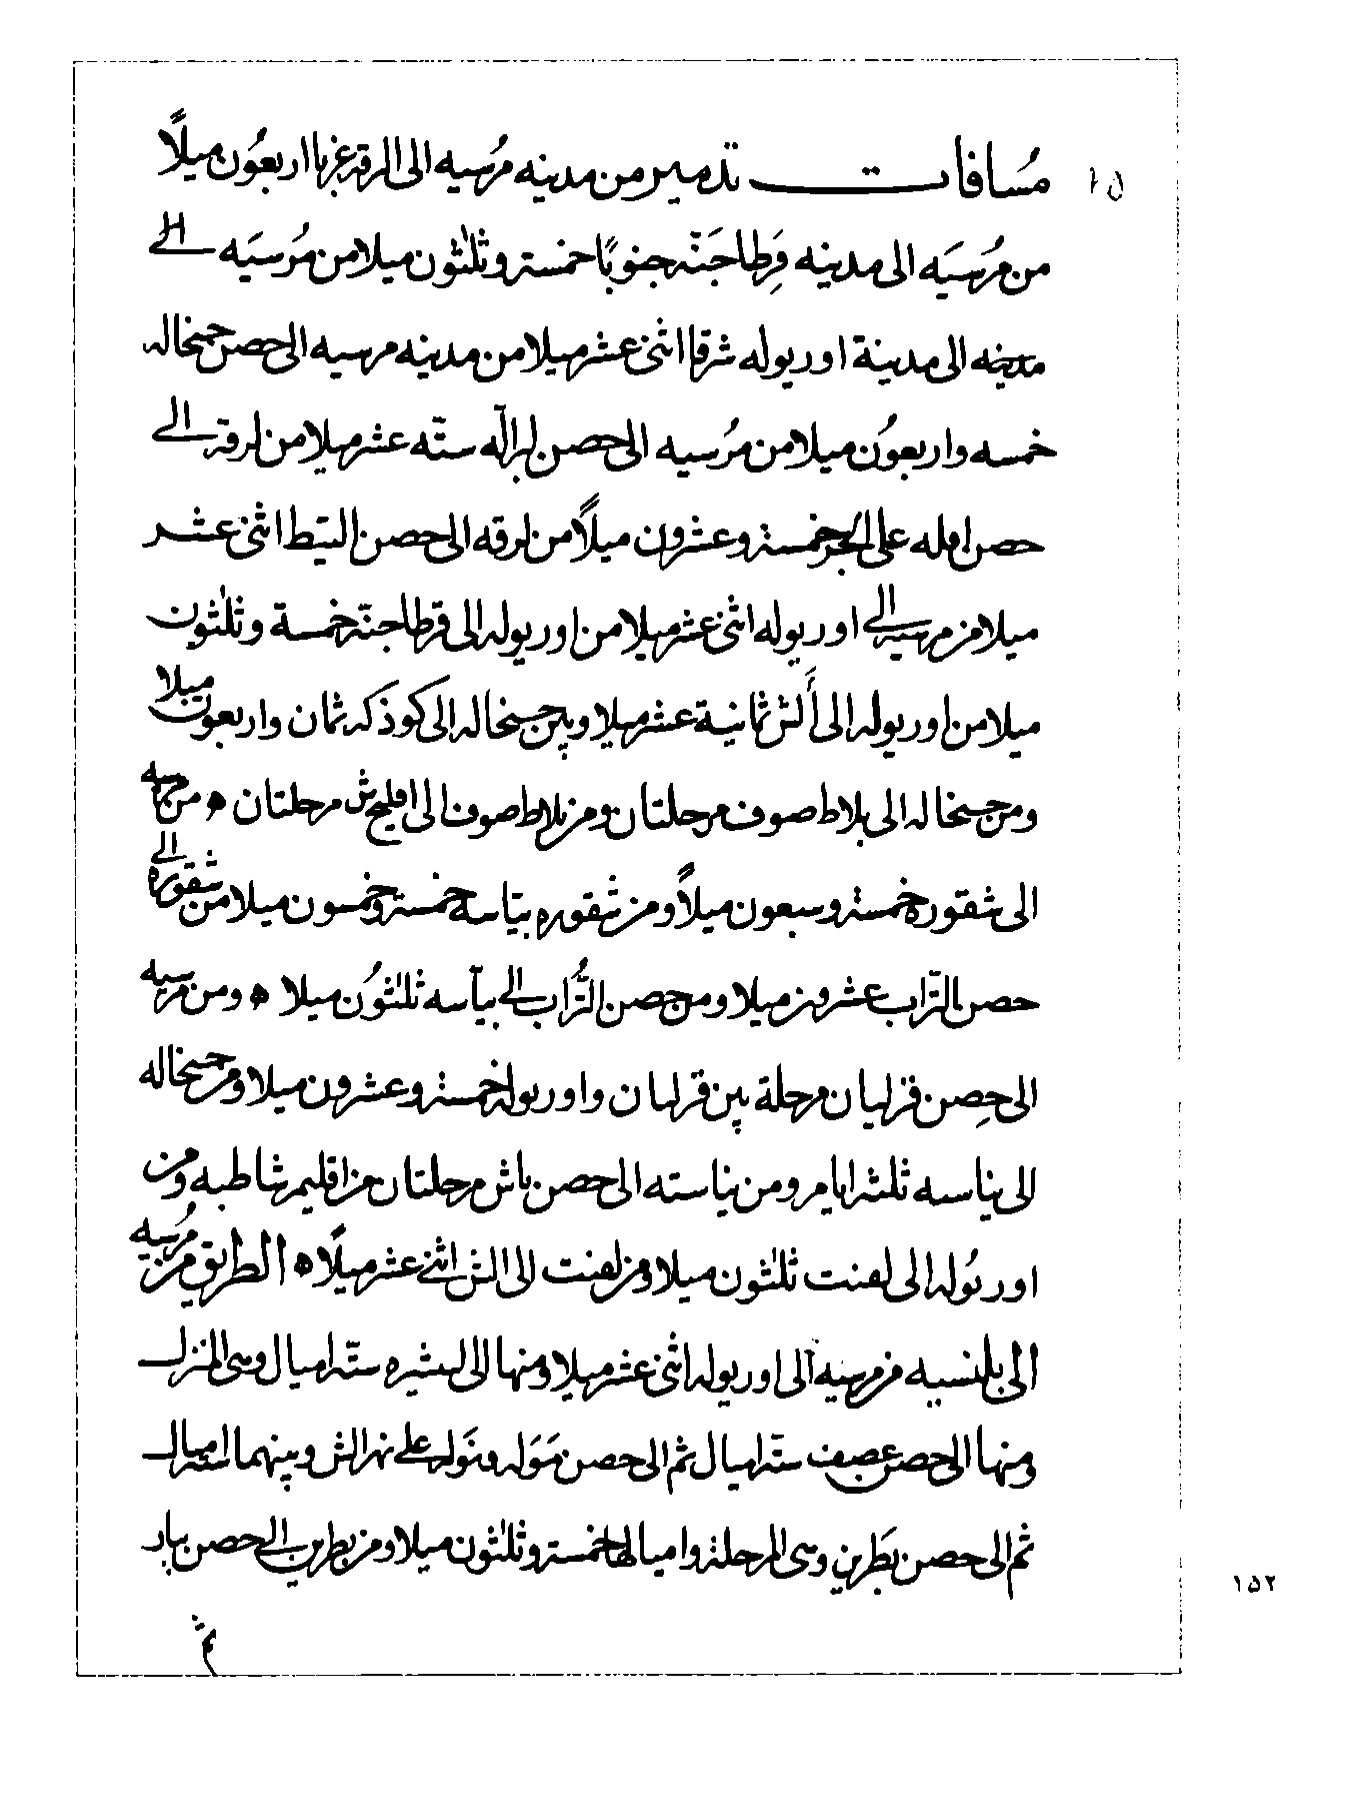 ١٥ مُسافات تدمير من مدينه مرُسيه الى الرقه غربا اربعُون ميلاً
من مرُسيَه الى مدينه قِرطاجَنّه جنوبًا خمسة وثلثون ميلا من مُرسيَه الى
مدينه الى مدينة اوريوله شرقا اثنى عشر ميلا من مدينه مرسيه الى حصن جنخاله
خمسه واربعوُن ميلا من مرُسيه الى حصن لبرالّه ستّه عشر ميلا من لرقة الى
حصن اهله على البحر خمسة وعشرون ميلاً من لرقه الى حصن البَيط اثنى عشر
ميلا من مرسيه الى اوريوله اثنى عشر ميلا من اوريوله الى قرطاجنّه خمسة وثلثون
ميلا من اوريوله الى أَلش ثمانية عشر ميلا وبين جنخاله الى كوذكه ثمان واربعون ميلا
ومن جنخاله الى بلاط صوف مرحلتان ومن بلاط صوف الى اقليج ش مرحلتان ٥ من مرسيه
الى شقوره خمسة وسبعون ميلاً ومن شقوره بيّاسه خمسة وخمسون ميلا من شقوره الى
حصن التّراب عشرون ميلا ومن حصن التُّراب الى بيآسه ثلثوُن ميلا ٥ ومن مرسيه
الى حِصن قرليان مرحلة بين قرليان واوريوله خمسة وعشرون ميلا ومن جنخاله
الى بياسه ثلثة ايام ومن بياسته الى حصن باش مرحلتان من اقليم شاطبه ومن
اوريُوله الى لقنت ثلثون ميلا ومن لقنت الى الش اثنى عشر ميلاً ٥ الطريق من مرُسيه
الى بلنسيه من مرسيه الى اوريوله اثنى عشر ميلا ومنها الى لبشيره ستّة اميال وهى المنزل
ومنها الى حصن عصف ستّة اميال ثم الى حصن مَوَله ونوَله على نهر الش وبينهما ستة اميال
ثم الى حصن بطَرين وهى المرحلة واميالها خمسة وثلثون ميلا ومن بطرين الى حصن بيار
ثم
١٥٢